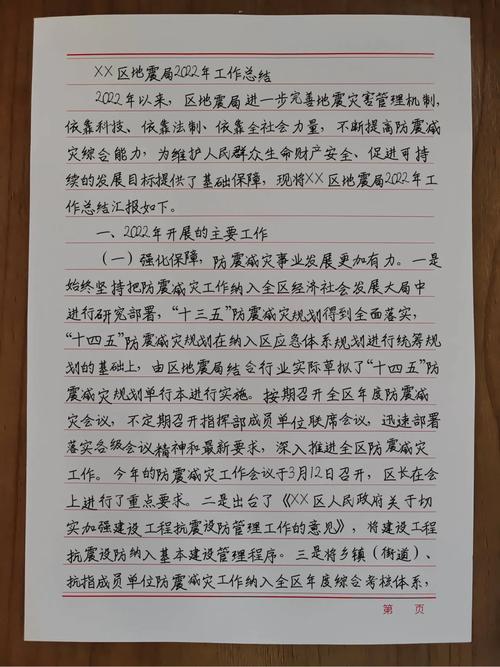 XX区地震局2022年工作总结
2022年以来，区地震局进一步完善地震灾害管理机制，
依靠科技、依靠法制、依靠全社会力量，不断提高防震减
灾综合能力，为维护人民群众生命财产安全、促进可持
续的发展目标提供了基础保障，现将XX区地震局2022年工
作总结汇报如下。
一、2022年开展的主要工作
（一）强化保障，防震减灾事业发展更加有力。一是
始终坚持把防震减灾工作纳入全区经济社会发展大局中
进行研究部署，“十三五”防震减灾规划得到全面落实，
“十四五”防震减灾规划在纳入区应急体系规划进行统筹规
划的基础上，由区地震局结合行业实际草拟了“十四五”防
震减灾规划单行本进行实施。按期召开全区年度防震减
灾会议，不定期召开指挥部成员单位联席会议，迅速部署
落实各级会议精神和最新要求，深入推进全区防震减灾
工作。今年的防震减灾工作会议于3月12日召开，区长在会
上进行了重点要求。二是出台了《XX区人民政府关于切
实加强建设工程抗震设防管理工作的意见》，将建设工程
抗震设防纳入基本建设管理程序。三是将乡镇（街道）、
抗指成员单位防震减灾工作纳入全区年度综合考核体系，
第 页